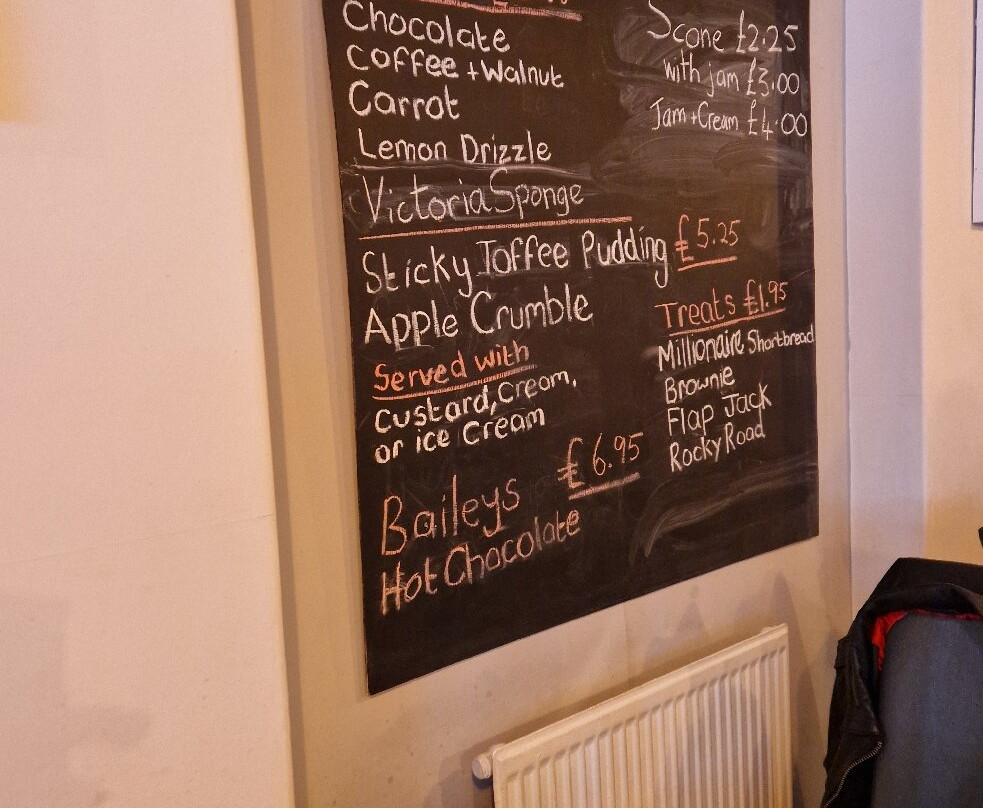 Chocolate
Coffee + Walnut
Carrot
Lemon Drizzle
Victoria Sponge
Sticky Toffee Pudding £5.25
Apple Crumble
Served with
Custard, Cream,
or ice Cream
Baileys £6.95
Hot Chocolate
Scone £2.25
with jam £3.00
Jam + Cream £4.00
Treats £1.95
Millionaire Shortbread
Brownie
Flap Jack
Rocky Road